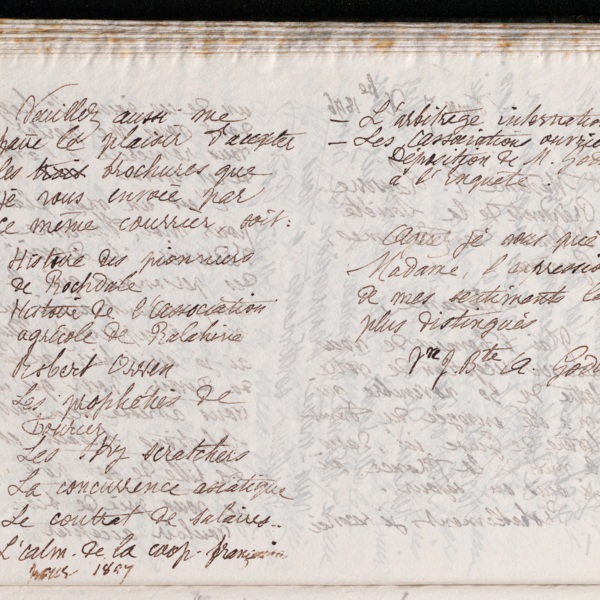 Veuillez aussi me
faire le plaisir d'accepter
les trois brochures que
je vous envoie par
ce même courrier soit:
Histoire des pionniers
de Rochdale
Histoire de l'association
agricole de Ralahine
Robert Owen
Les prophéties de
Fourier
Les Sky scratchers
La concurrence asiatique
Le contrat de salaires..
L'alm. de la coop. française
pour 1897
– L'arbitrage internation
– Les associations ouvriè
Déposition de M. God
à l'Enquête.
Agréez je vous prie
Madame, l'expressio
de mes sentiments le
plus distingués
J. Bte A. God